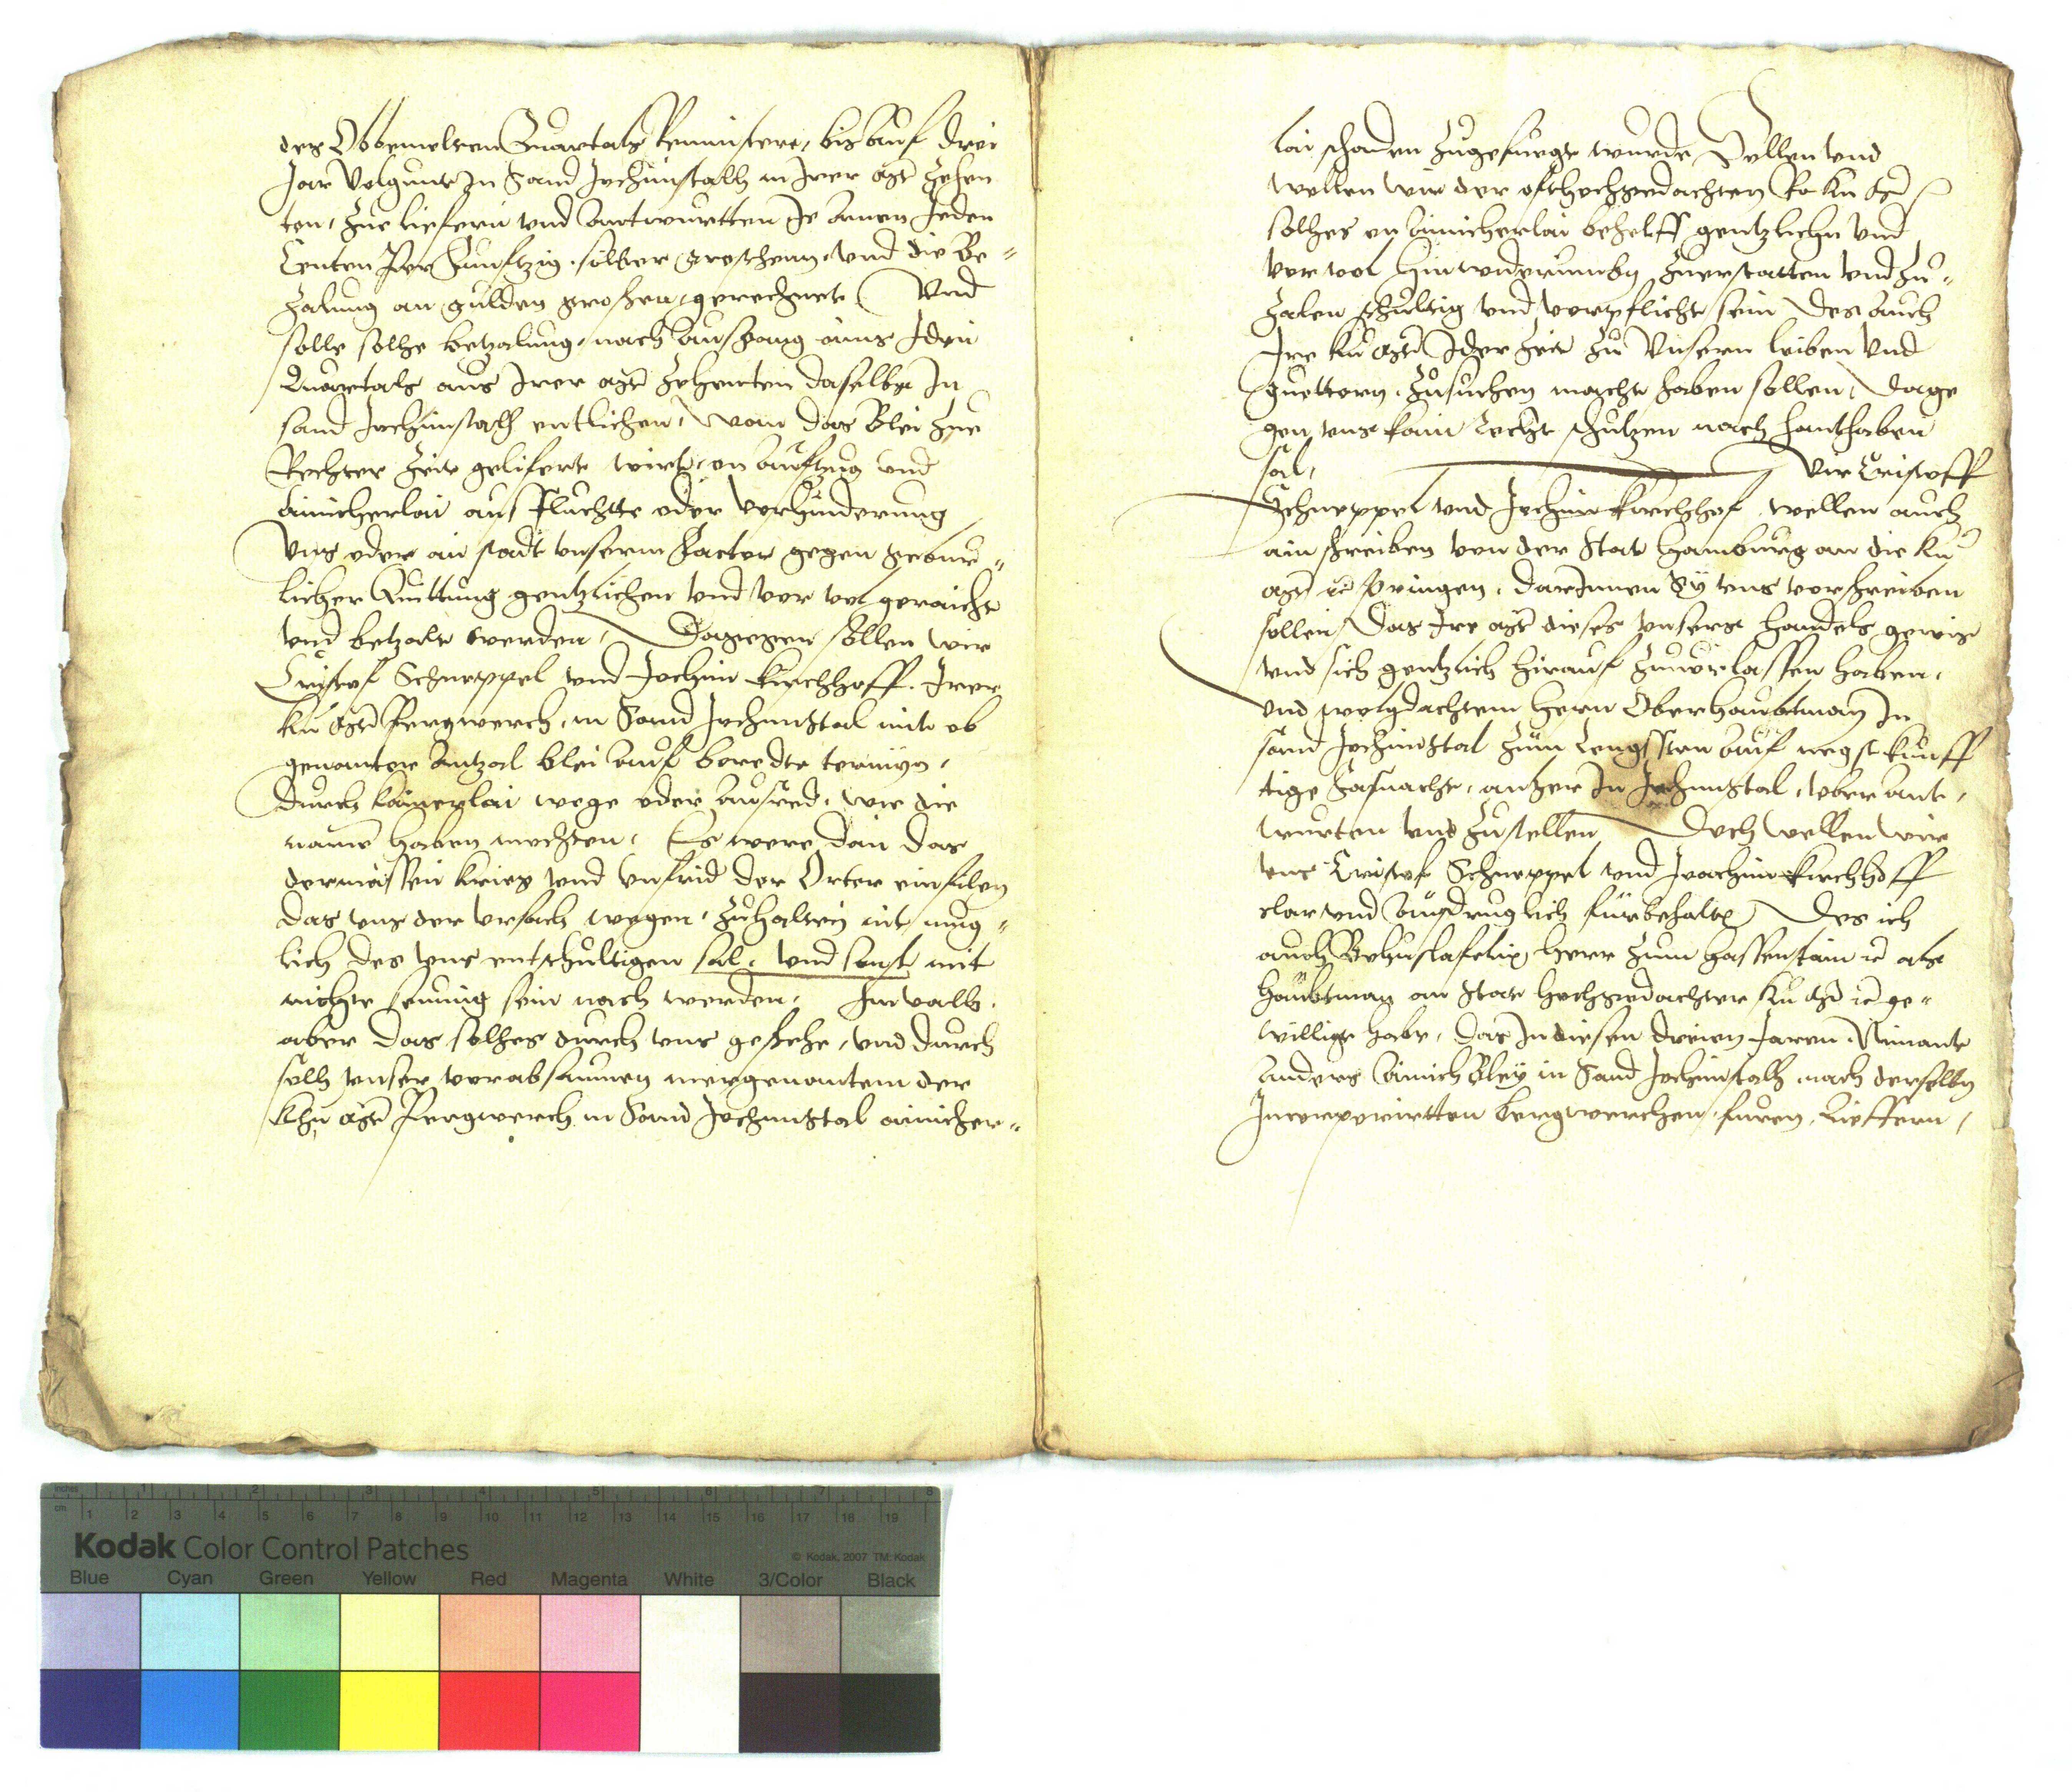 des Obbemelten Quartals Reminiscere, bis auf drei
Jar volgunt In Sand Jochimstalh in Irer Mt Zehen
ten, zue liefern und antwurtten Je ainen Jeden
Centen Per Funfzig silber groschenn, und die Be=
zalung an gulden groschen, gerechnet Und
solle solhe betzalung, nach ausgang aines Iden
Quartals aus Irer Mt Zehenten daselbst In
sand Jochimstalh entlichen, wann das Blei zue
Rechter Zeit gelifert wirt, on aufzug und
ainicherlai aus Fluchtte oder verhinderung
Uns oder an stadt unserm Factor gegen gebure=
licher Quittung gentzlichen und wer vol geraicht
und betzalt werden, Dagegen sollen wir
Cristof Schneppel und Jochim Kirchhoff. Irer
Ku Mt Pergwerch, in Sand Jochimstal mit ob
genanter Antzal blei auf beredte termyn,
durch kainerlai wege oder ausred, wie die
name haben mechten, Es were dan das
dermassen krieg und unfrid der Orter einfielen
das uns der ursach wegen, zuhalten nit mug=
lich des uns entschultigen sol, und sonst mit
nichte seumig sein nach werden, Im valh,
aber das solhes durch uns geschehe, und durch
solh unser verabsaumen mergenantem der
Khu Mt Pergwerch in Sand Jochimstal ainicher=
lai schaden zugefuegt wurde Sollen und
wellen wir der ofthochgedachten Ro Ku Mt
solhes on ainicherlai behelff gentzlichn und
vor vol hinwiderumben zuerstatten und zu=
zalen schultig und verpflicht sein Des auch
Ire Ku Mt Ider Zeit zu unsern leiben und
guettern, zusuchen macht haben sollen, Dage
gen uns kain Recht schutzen nach hanthaben
sol, Wir Cristoff
Schneppel und Jochim Kirchhof wellen auch
ain schreiben von der Stat Hamburg an die Ku
Mt etc pringen, darInnen Sy uns verschreiben
sollen, Das Ire Mt dieses unsers handels gewis
und sich gentzlich hirauf zuverlassen haben,
und wolgedachtem hern Oberhaubtman In
sand Jochimstal zum Lengssten auf negst kunff
tige Fasnacht, anher In Jochimstal, uber ant,
wurten und zustellen Doch wellen wir
uns Cristof Schneppel und Joachim Kirchhoff
clar und ausdruglich furbehalten Des ich
auch Bohuslafelix herr zum hassenstain etc als
haubtman an stat hochgedachter Ku Mt etc ge=
willigt habe, das In diesen dreien Jaren, Nimants
Anders ainich Bley in Sand Jochimstalh nach derselben
Incorporirtten bergwerchen, furen, Lieffern,